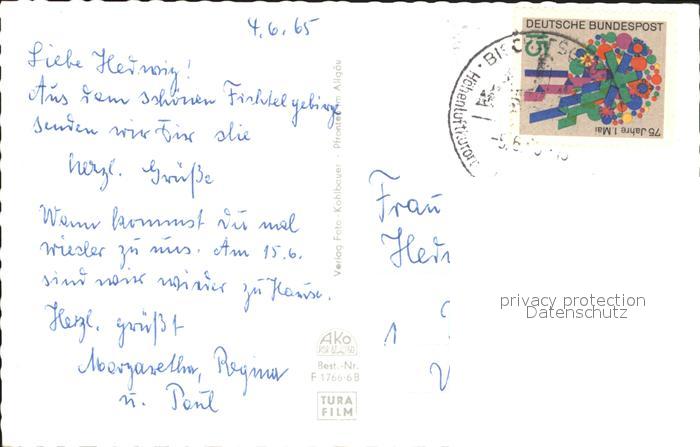 4.6.65
Liebe Hedwig!
Aus dem schönen Fichtelgebirge
senden wir Dir die
herzl. Grüße
Wann kommst Du mal
wieder zu uns. Am 15.6.
sind wir wieder zu Hause.
Herzl. grüßt
Margaretha, Regina
u. Paul
Verlag Foto-Kohlbauer · Pfronten Allgäu
AKO
Best.-Nr.
F 1766-6B
TURA
FILM
DEUTSCHE BUNDESPOST
15
75 Jahre 1. Mai
Höhenluftkurort
Frau
1
privacy protection
Datenschutz